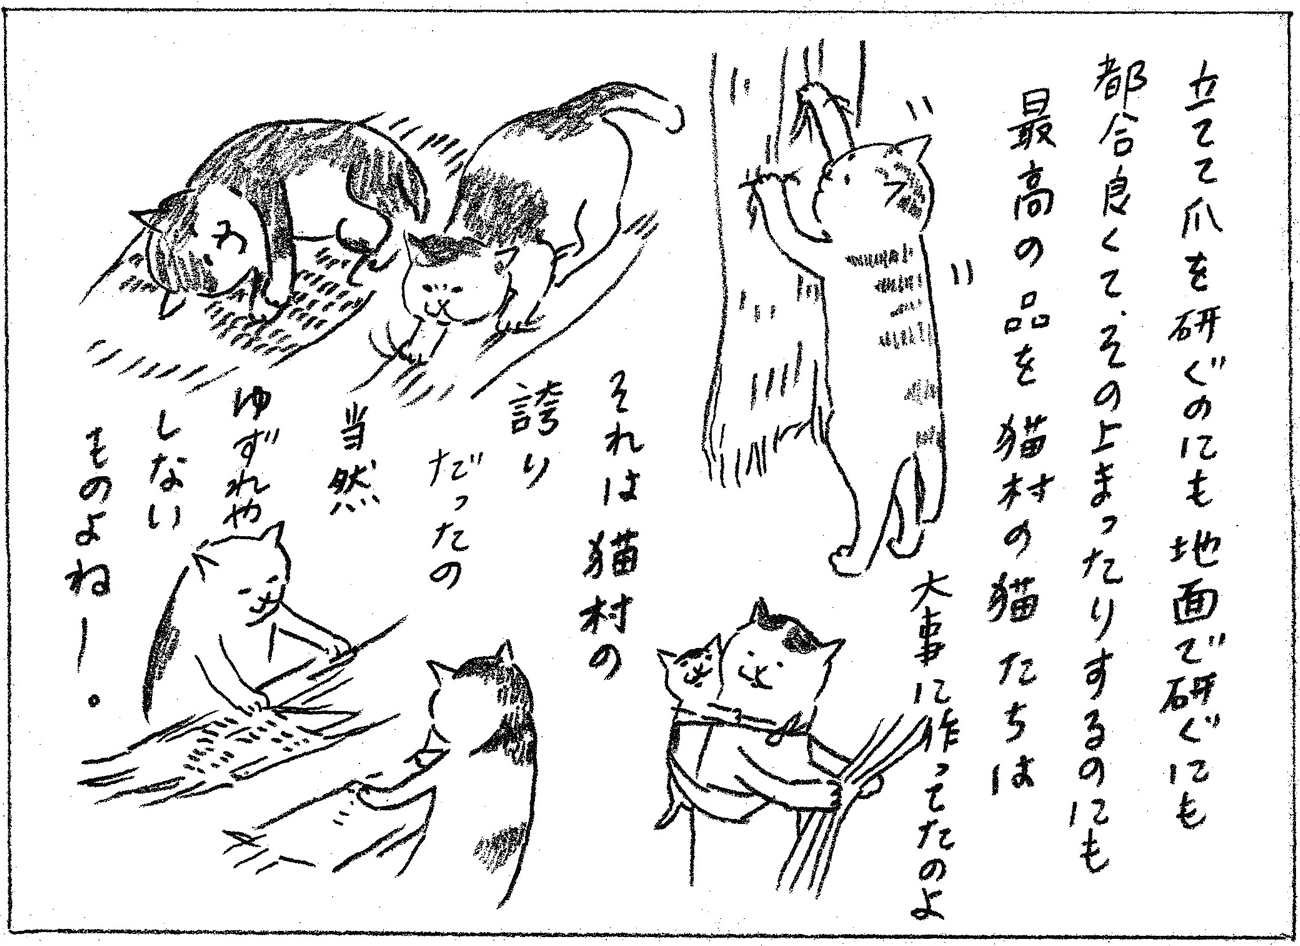 立てて爪を研ぐのにも地面で研ぐにも
都合良くて、その上まったりするのにも
最高の品を猫村の猫たちは
大事に作ってたのよ
それは猫村の
誇り
だったの
当然
ゆずれや
しない
ものよねー。